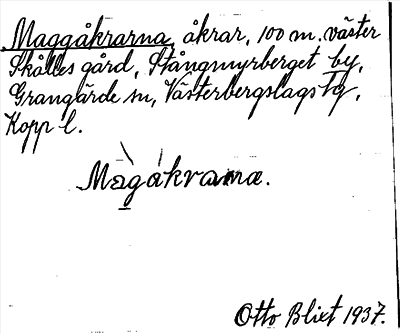 Maggåkrarna, åkrar, 100 m. väster
Skålles gård, Stångmyrberget by,
Grangärde sn, Västerbergslags tg,
Kopp l.
Màgákrama.
Otto Blixt 1937.